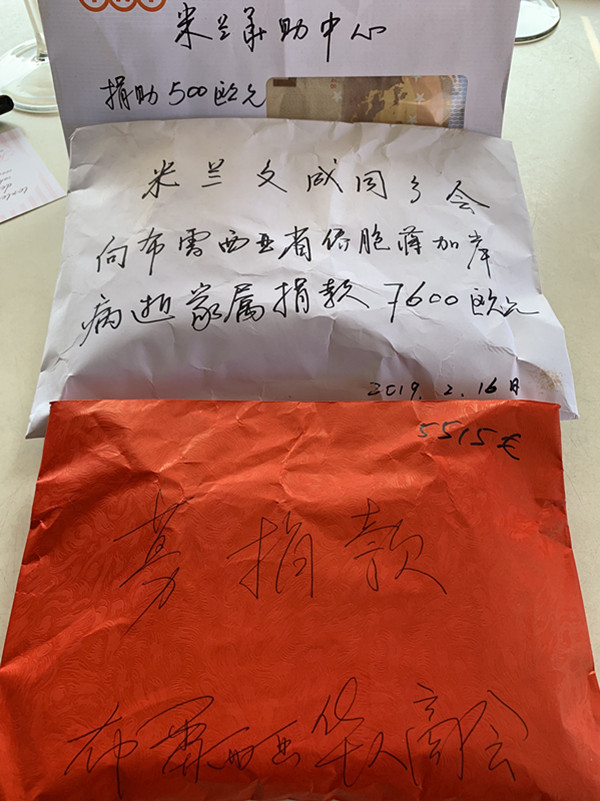 米兰华助中心
捐助500欧元
米兰文成同乡会
向布雷西亚省侨胞蒋加岸
病逝家属捐款7600欧元
2019.2.16日
5515€
募捐款
布雷西亚华人商会